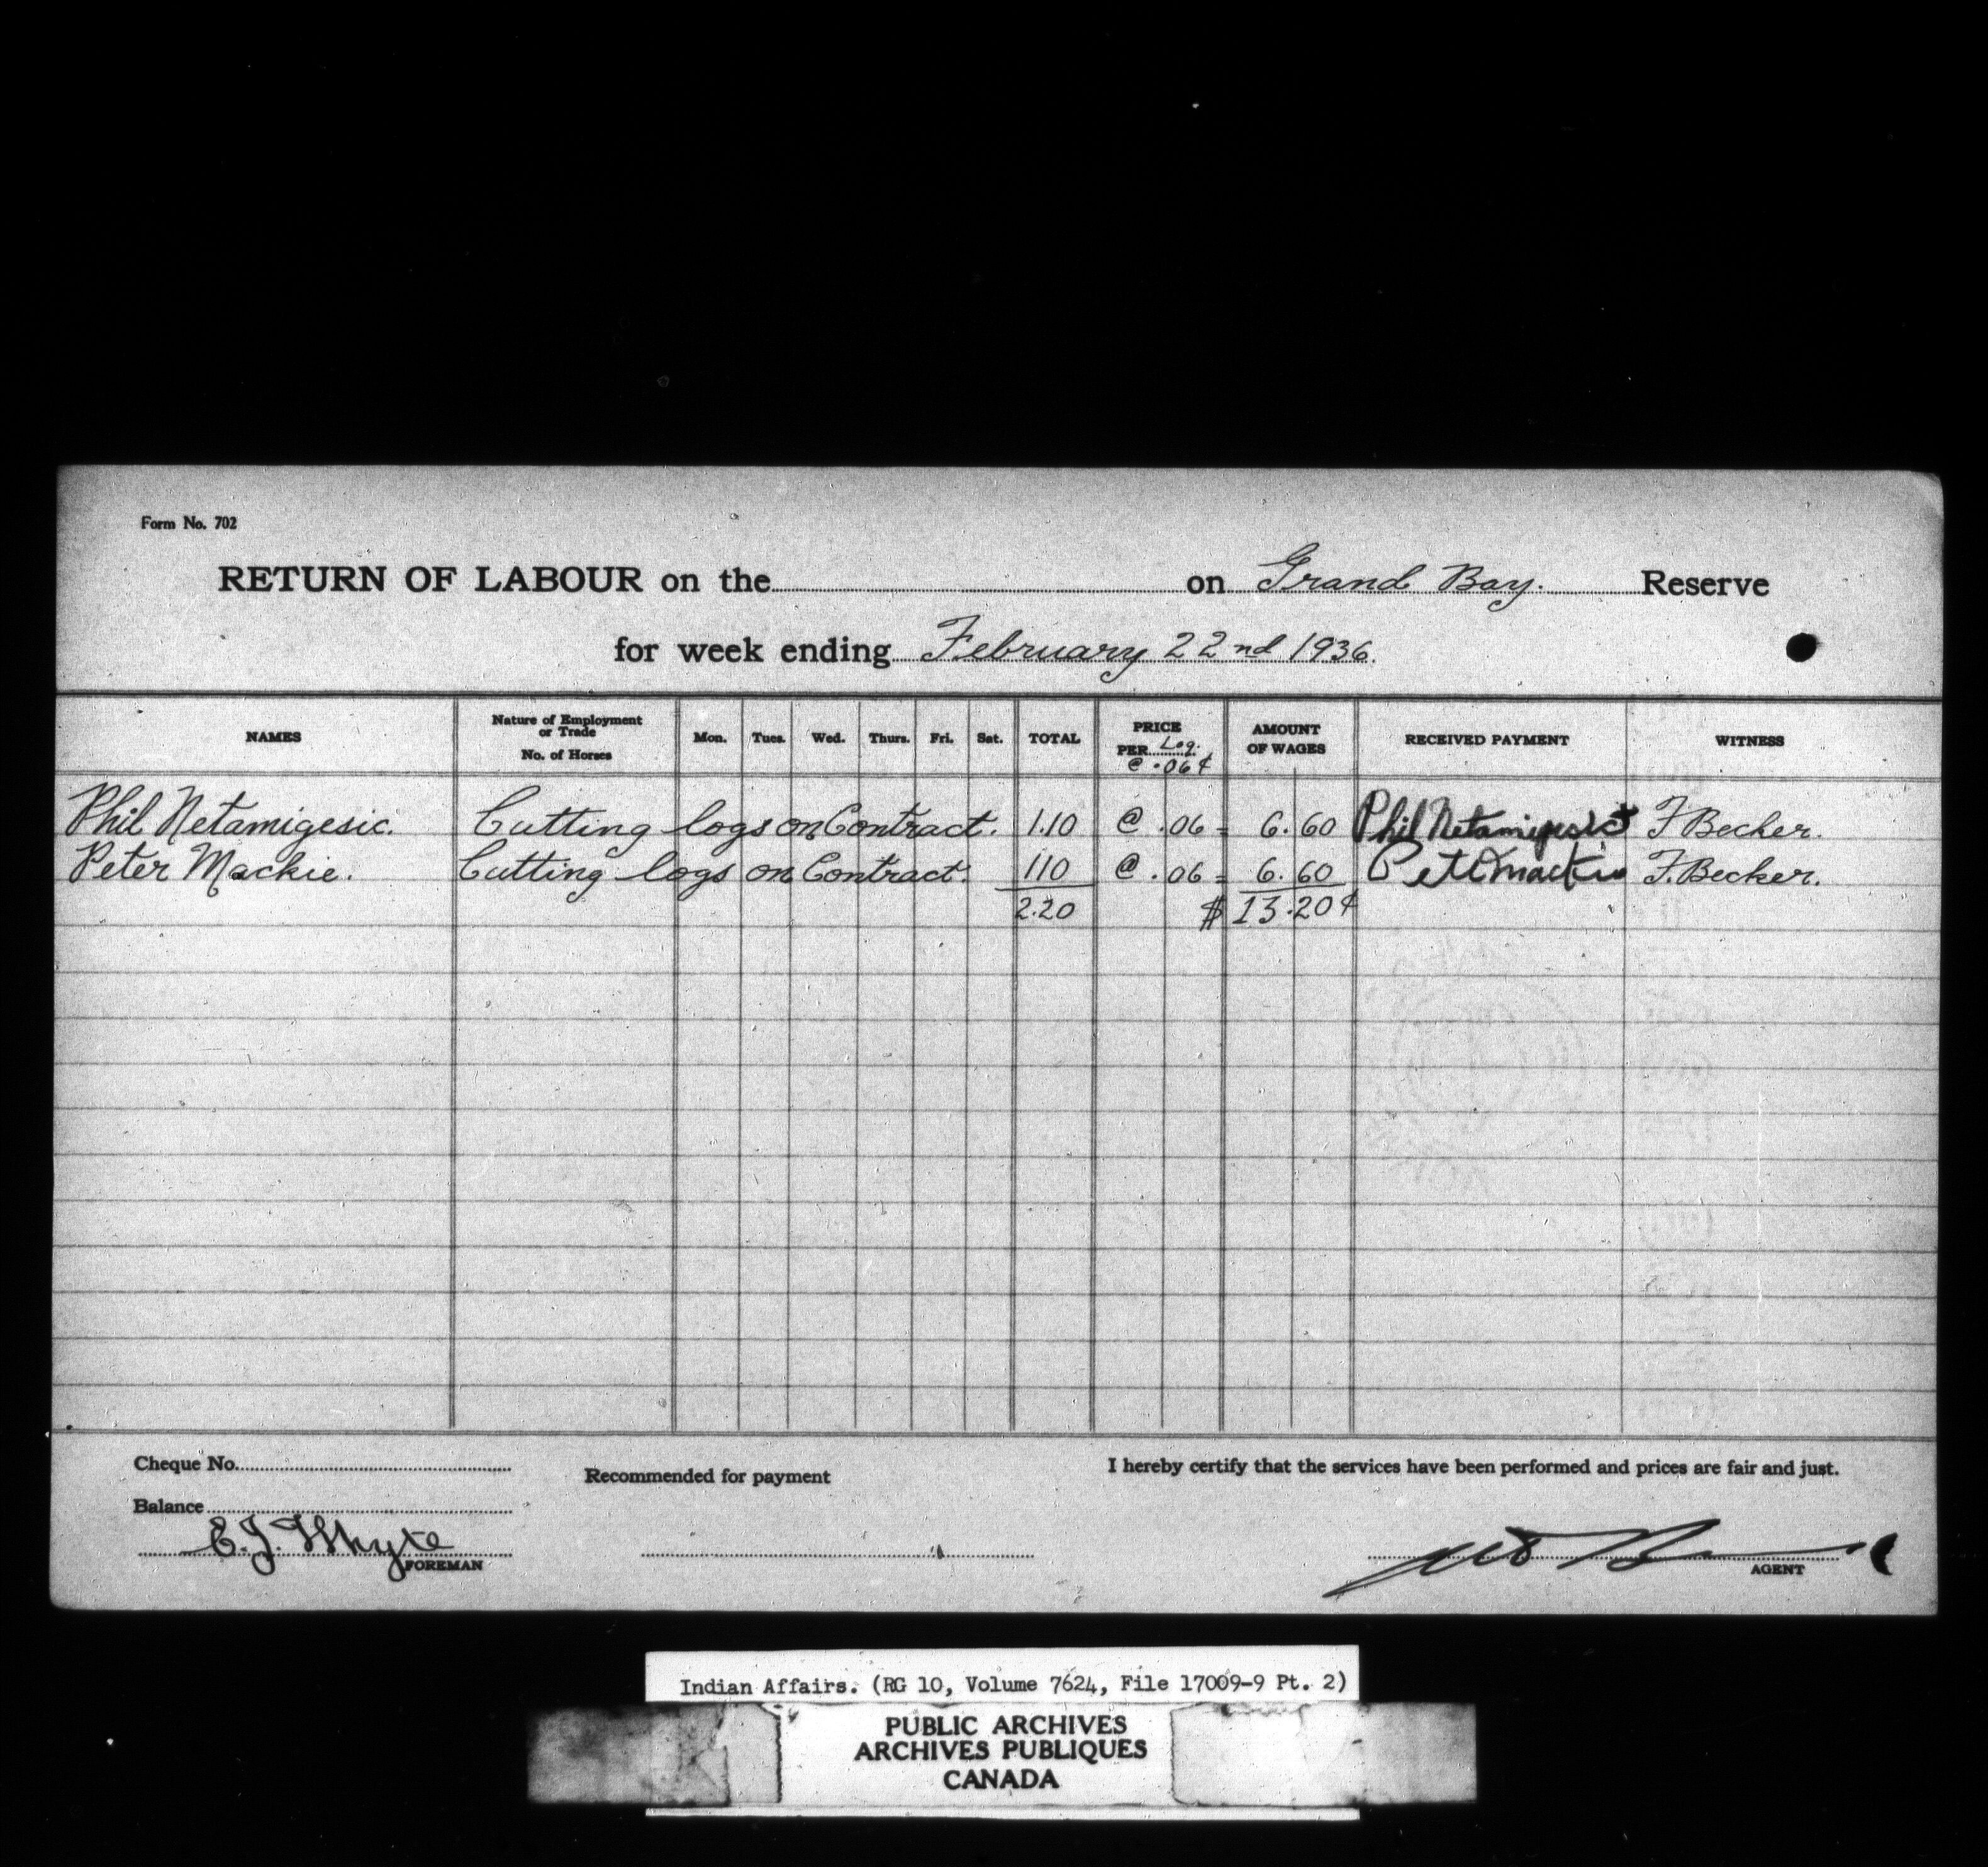 Form No. 702
RETURN OF LABOUR on the on Grand Bay. Reserve
for week ending February 22nd 1936.
NAMES Nature of Employment or Trade No. of Horses Mon. Tues. Wed. Thurs. Fri. Sat. TOTAL PRICE PER Log. @ .06¢ AMOUNT OF WAGES RECEIVED PAYMENT WITNESS
Phil Netamigesic. Cutting logs on Contract. 1.10 @ .06 = 6.60 Phil Netamigesic F Becker.
Peter Mackie. Cutting logs on Contract. 110 @ .06 = 6.60 F. Becker.
2.20 $ 13.20¢
Cheque No.
Recommended for payment
I hereby certify that the services have been performed and prices are fair and just.
Balance
E.J. Whyte
FOREMAN
AGENT
Indian Affairs. (RG 10, Volume 7624, File 17009-9 Pt. 2)
PUBLIC ARCHIVES
ARCHIVES PUBLIQUES
CANADA